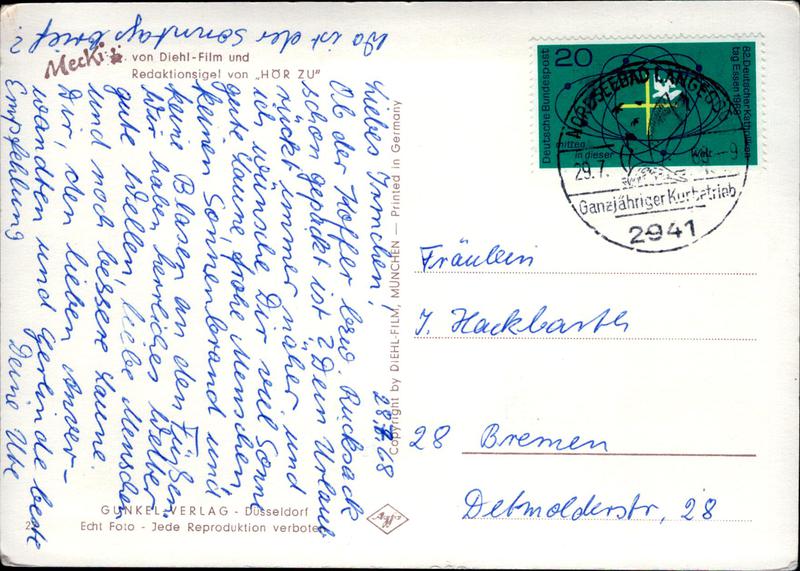 Wo ist der Sonntagsbrief?
Mecki
von Diehl-Film und
Redaktionsigel von „HÖR ZU"
28.7.68
Liebes Irmchen!
Ob der Koffer bzw. Rucksack
schon gepackt ist? Dein Urlaub
rückt immer näher und
ich wünsche Dir viel Sonne
gute Laune, frohe Menschen
keinen Sonnenbrand und
keine Blasen an den Füßen.
Wir haben herrliches Wetter
gute Wellen, liebe Menschen
und noch bessere Laune.
Dir, den lieben Anver-
wandten und Gerlinde beste
Empfehlung
Deine Ute
GUNKEL-VERLAG - Düsseldorf
Echt Foto - Jede Reproduktion verboten
Copyright by DIEHL-FILM, MÜNCHEN — Printed in Germany
20
Deutsche Bundespost
82. Deutscher Katholiken
tag Essen 1968
mitten
in dieser
Welt
NORDSEEBAD LANGEOOG
29.7.
-9
Ganzjähriger Kurbetrieb
2941
Fräulein
I. Hackbarth
28 Bremen
Detmolderstr, 28